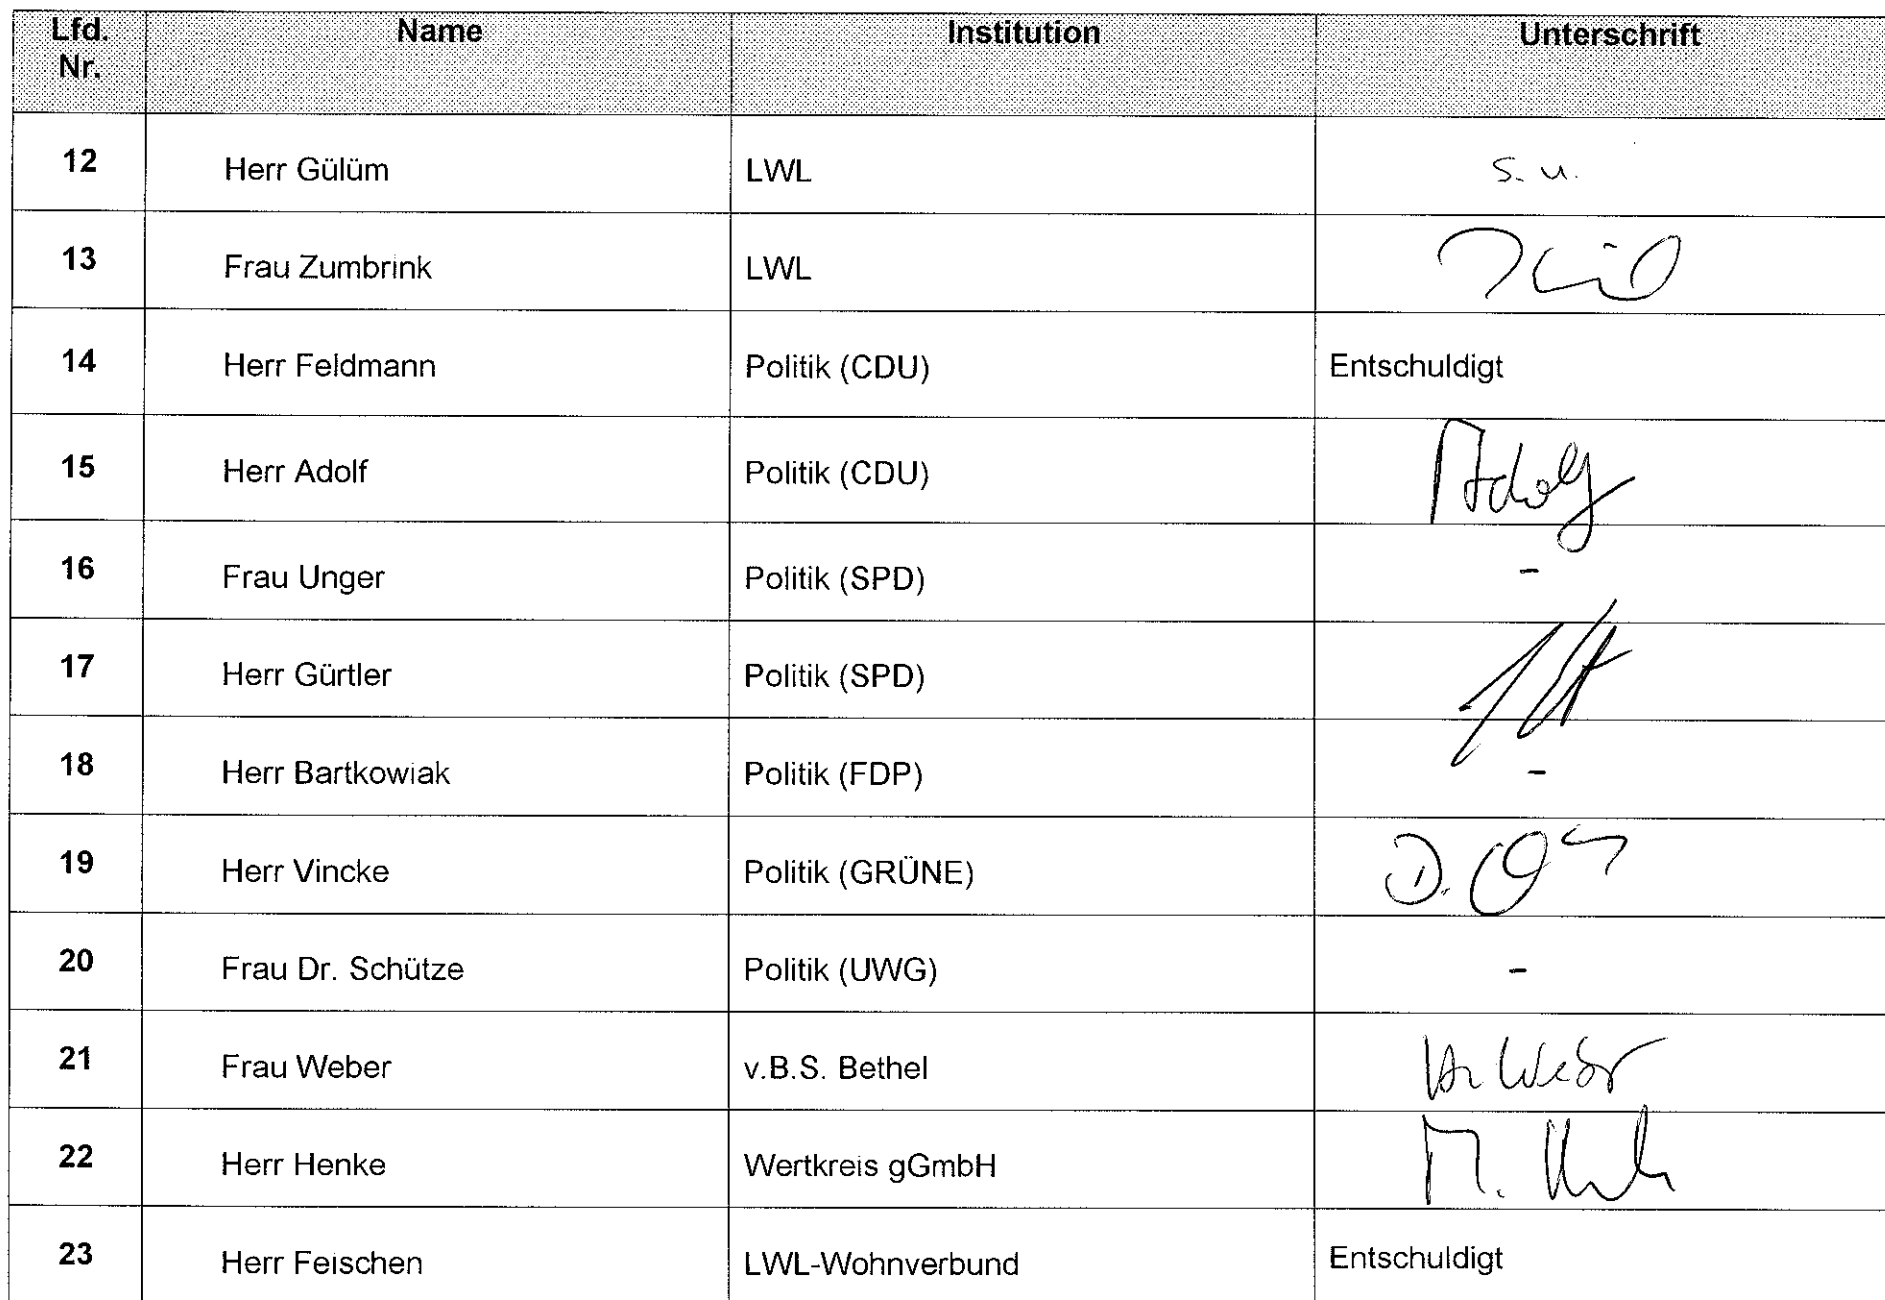 Lfd. Nr. Name Institution Unterschrift
12 Herr Gülüm LWL s. u.
13 Frau Zumbrink LWL
14 Herr Feldmann Politik (CDU) Entschuldigt
15 Herr Adolf Politik (CDU) Adolf
16 Frau Unger Politik (SPD) -
17 Herr Gürtler Politik (SPD)
18 Herr Bartkowiak Politik (FDP) -
19 Herr Vincke Politik (GRÜNE) D.
20 Frau Dr. Schütze Politik (UWG) -
21 Frau Weber v.B.S. Bethel Weber
22 Herr Henke Wertkreis gGmbH M.
23 Herr Feischen LWL-Wohnverbund Entschuldigt